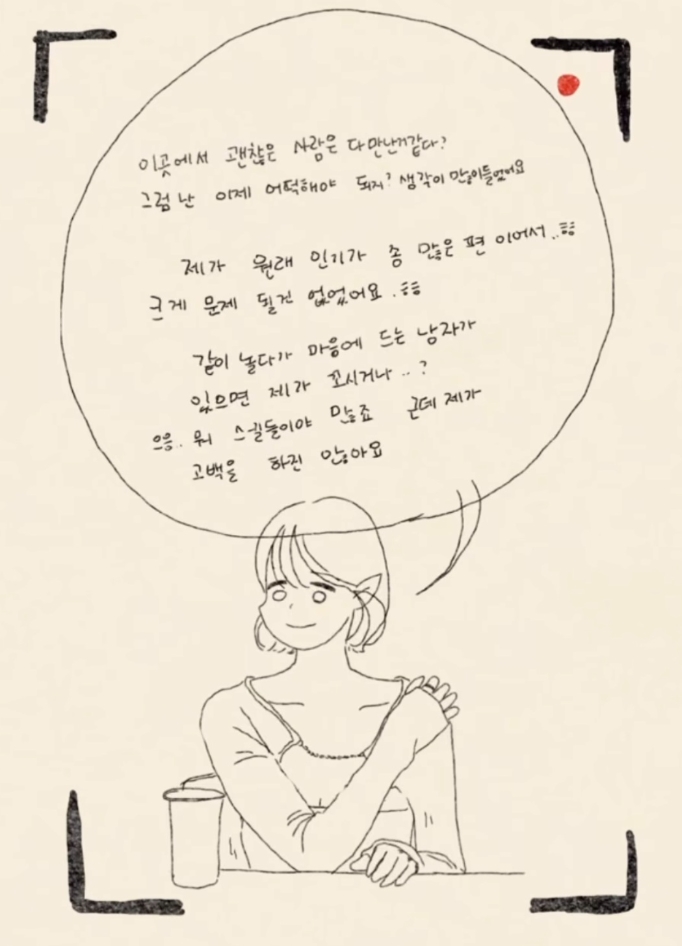 이곳에서 괜찮은 사람은 다 만난거같다?
그럼 난 이제 어떡해야 되지? 생각이 많이들었어요
제가 원래 인기가 좀 많은 편 이어서..ㅎㅎ
크게 문제 될건 없었어요.ㅎㅎ
같이 놀다가 마음에 드는 남자가
있으면 제가 꼬시거나..?
으응. 뭐 스킬들이야 많죠 근데 제가
고백을 하진 않아요